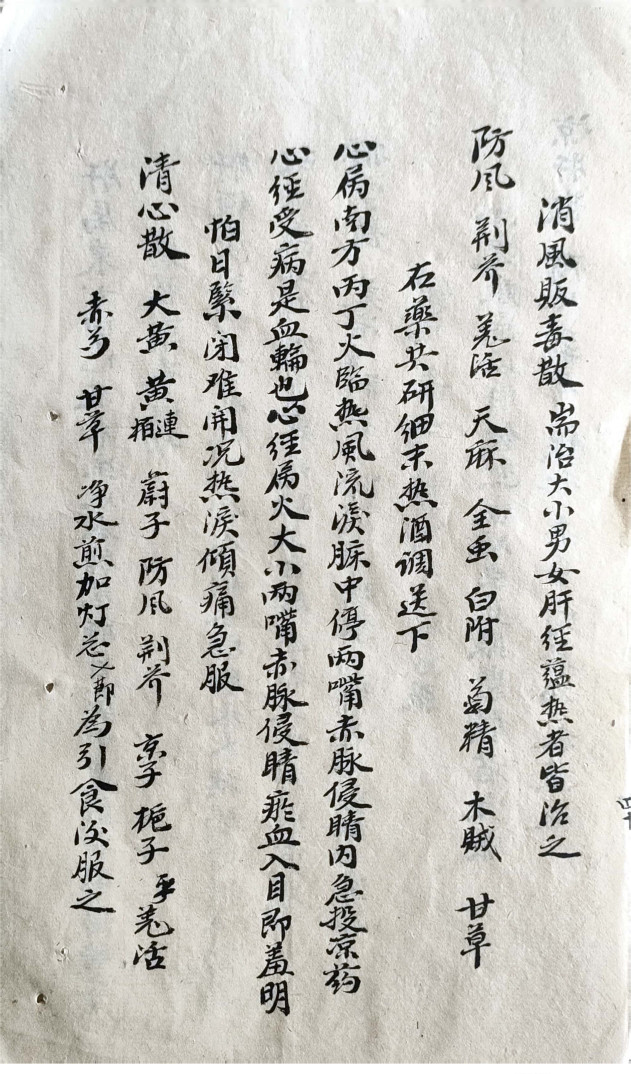 消風販毒散 耑治大小男女肝经蕴热者皆治之
防风 荆芥 羌活 天麻 全虫 白附 菊精 木贼 甘草
右藥共研细末热酒调送下
心属南方丙丁火臨热風流淚脲中停两嘴赤脉侵睛内急投凉药
心经受病是血輪也心经属火大小两嘴赤脉侵睛瘀血入目即羞明
怕日緊闭难開况热淚傾痛急服
清心散 大黄 黄連 栢 蔚子 防风 荆芥 京子 梔子 羌活
赤芍 甘草 净水煎加灯芯 節為引食後服之
四十